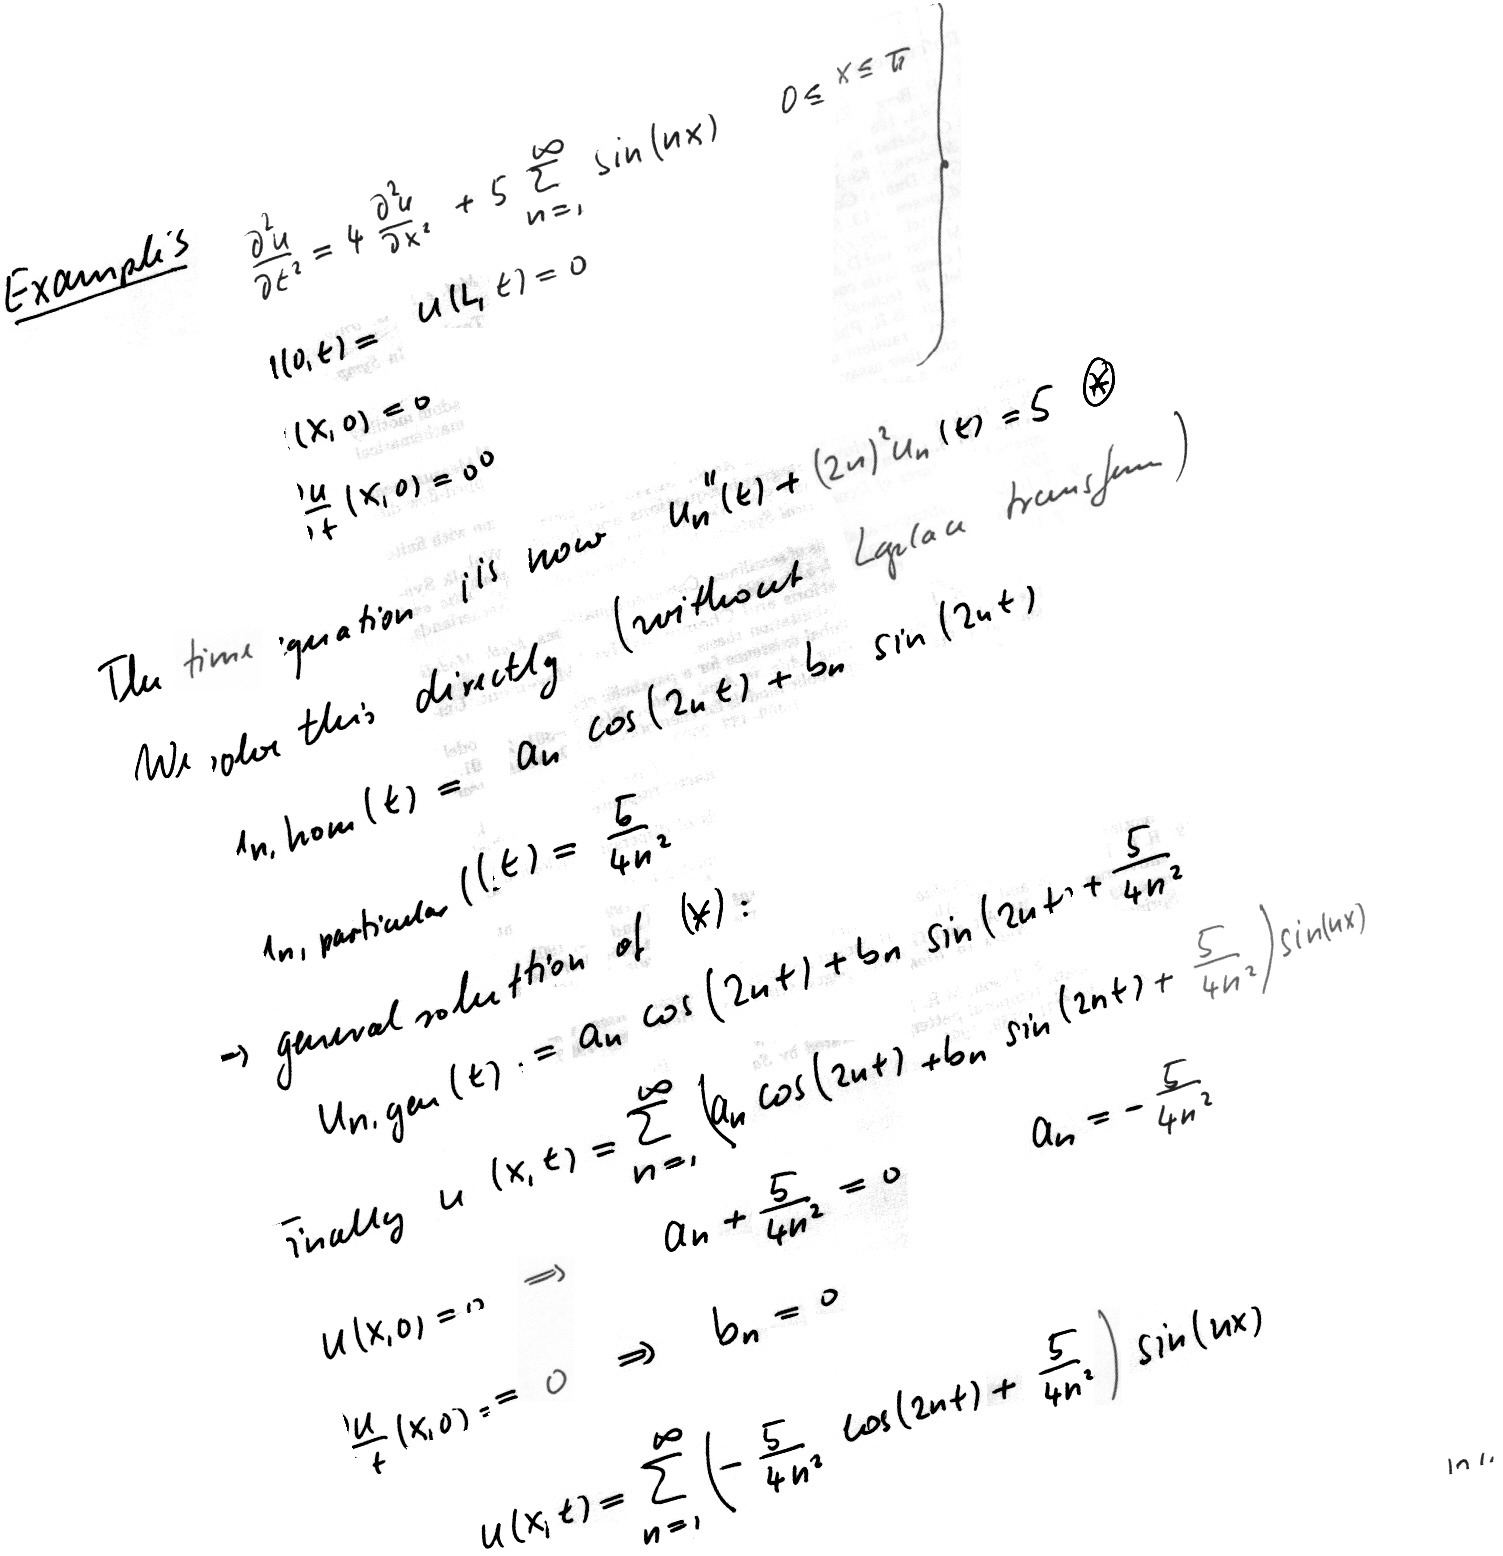 Example's ∂²u/∂t² = 4 ∂²u/∂x² + 5 ∑_{n=1}^∞ sin(nx) 0 ≤ x ≤ π
(0,t) = u(L,t) = 0
(x,0) = 0
u/t (x,0) = 00
The time equation is now uₙ''(t) + (2n)²uₙ(t) = 5 ⊛
We solve this directly (without Laplace transform)
n, hom(t) = aₙ cos(2nt) + bₙ sin(2nt)
n, particular(t) = 5/4n²
→ general soluttion of (*):
uₙ,gen(t) = aₙ cos(2nt) + bₙ sin(2nt) + 5/4n²
Finally u(x,t) = ∑_{n=1}^∞ (aₙ cos(2nt) + bₙ sin(2nt) + 5/4n²) sin(nx)
u(x,0) = 0 ⇒ aₙ + 5/4n² = 0 aₙ = - 5/4n²
u/t (x,0) = 0 ⇒ bₙ = 0
u(x,t) = ∑_{n=1}^∞ (- 5/4n² cos(2nt) + 5/4n²) sin(nx)